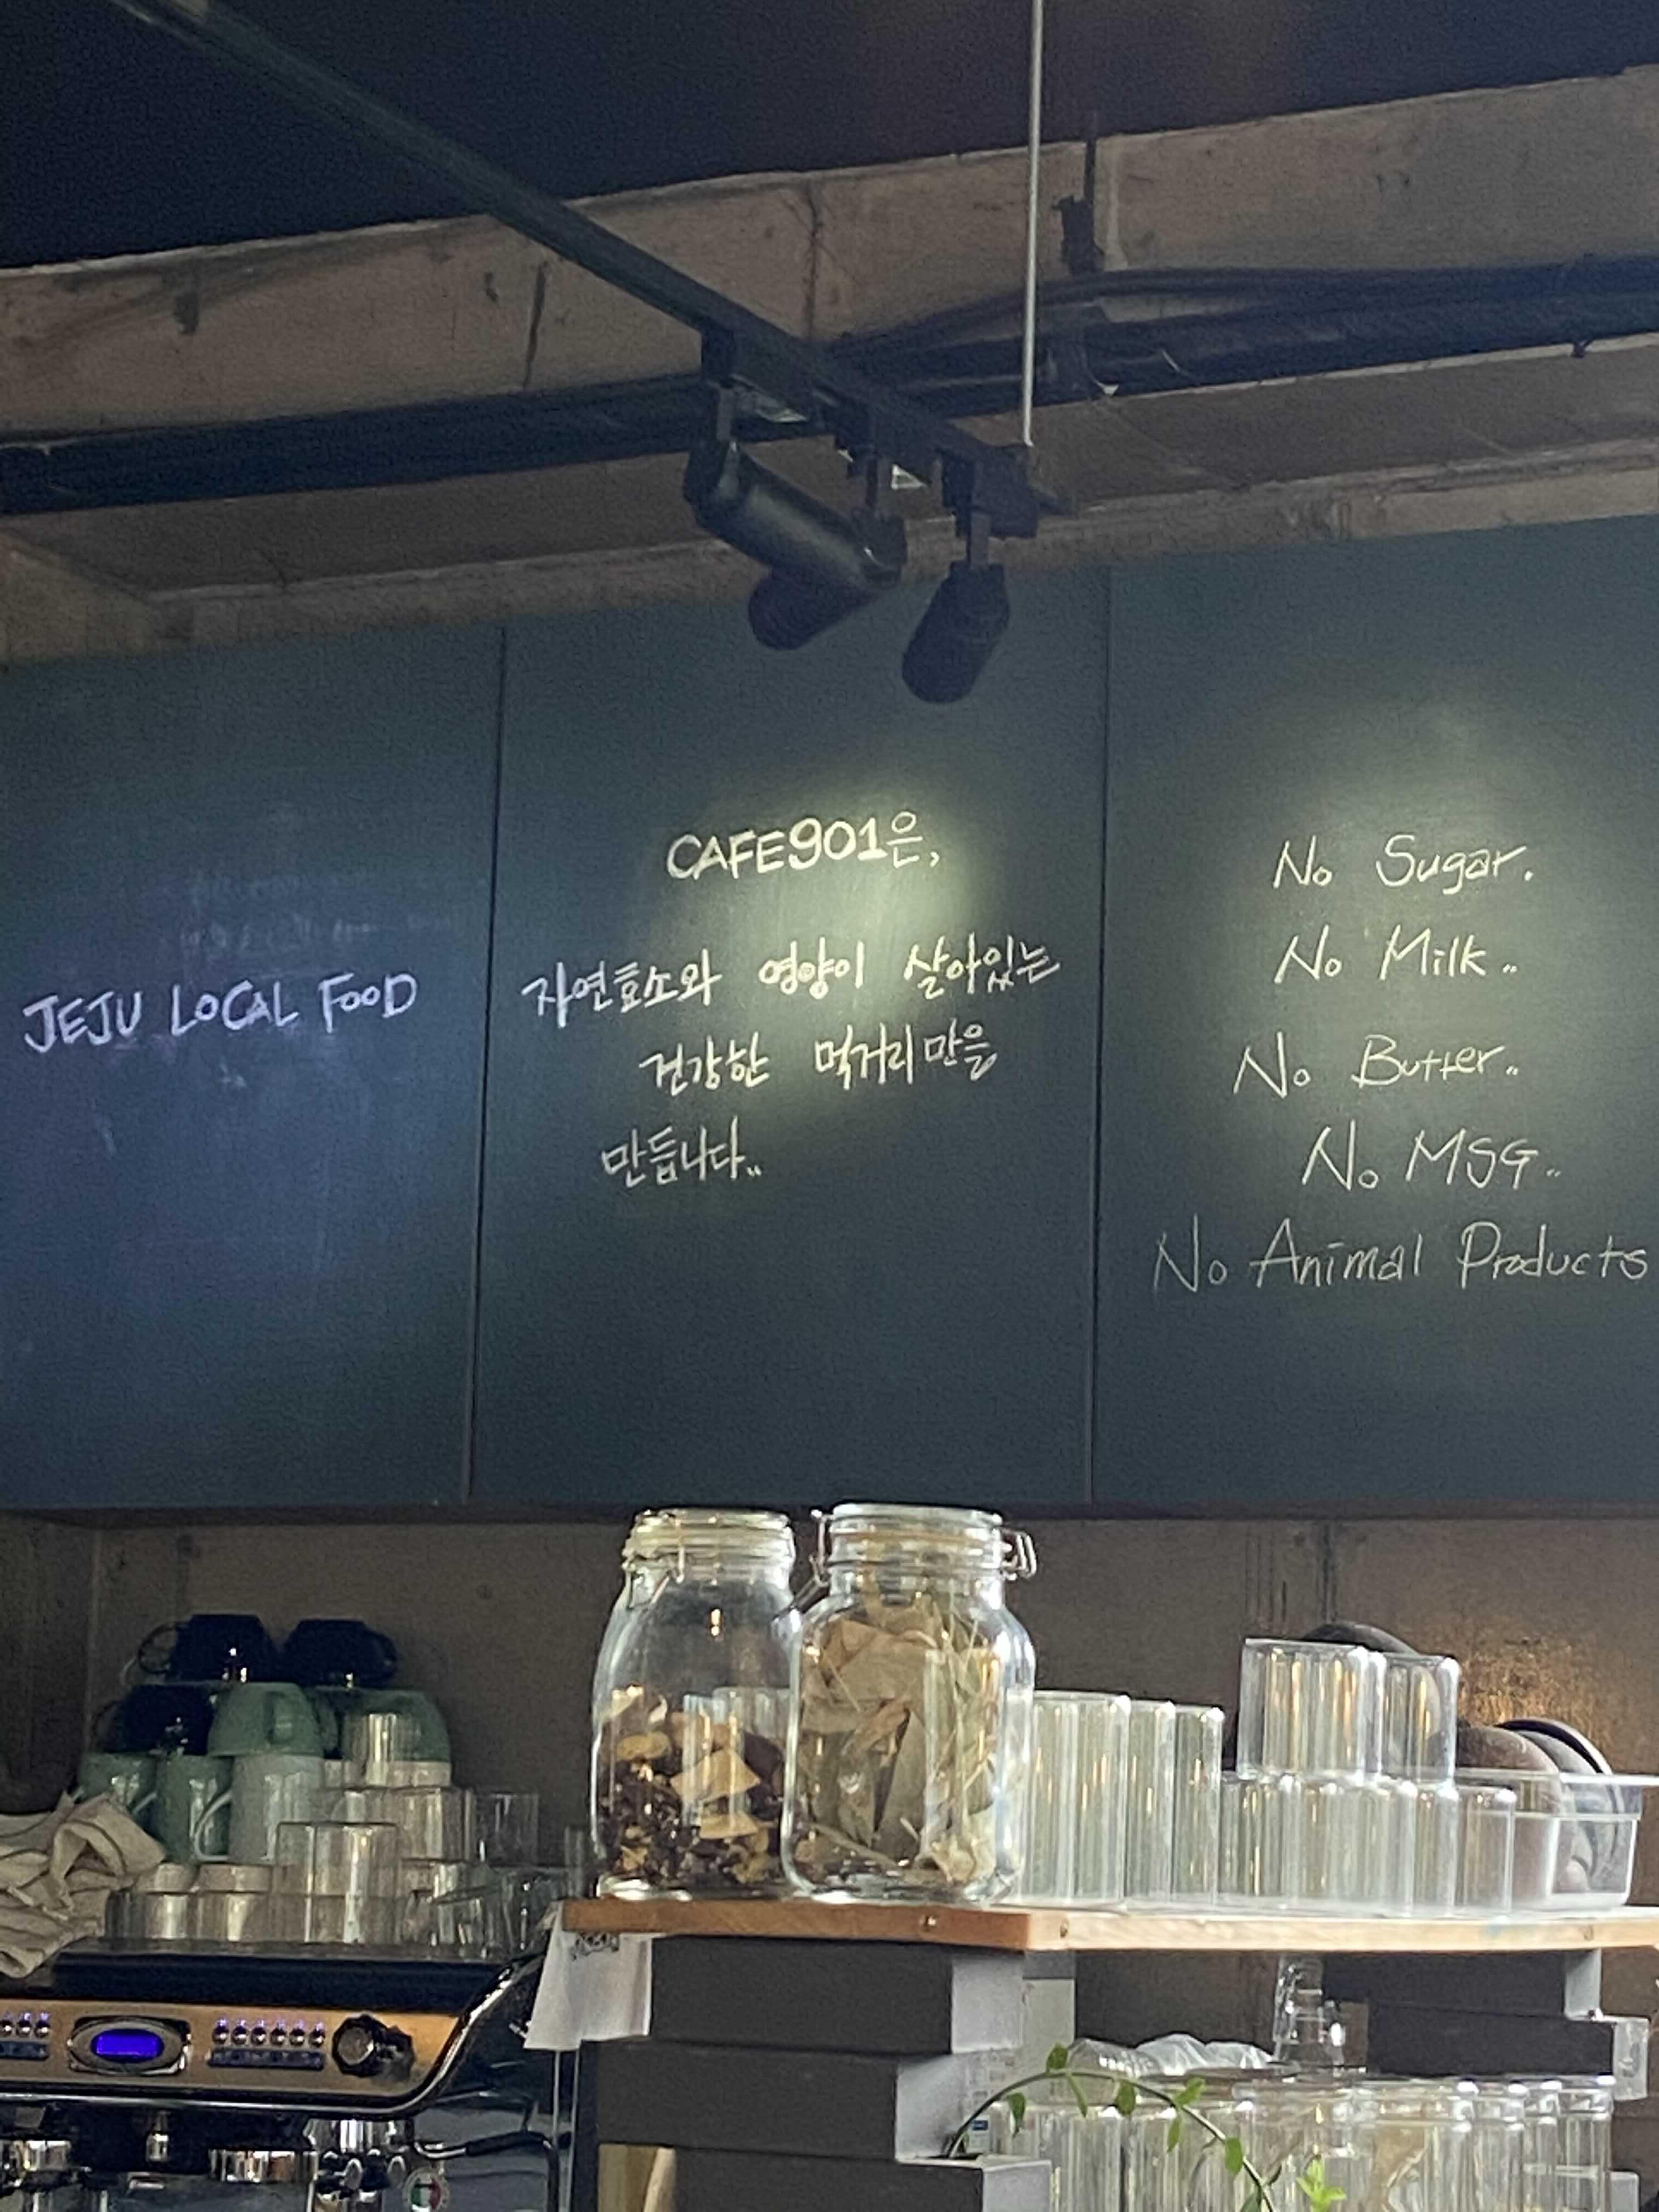 JEJU LOCAL FOOD
CAFE901은,
자연효소와 영양이 살아있는
건강한 먹거리만을
만듭니다..
No Sugar.
No Milk..
No Butter..
No MSG..
No Animal Products